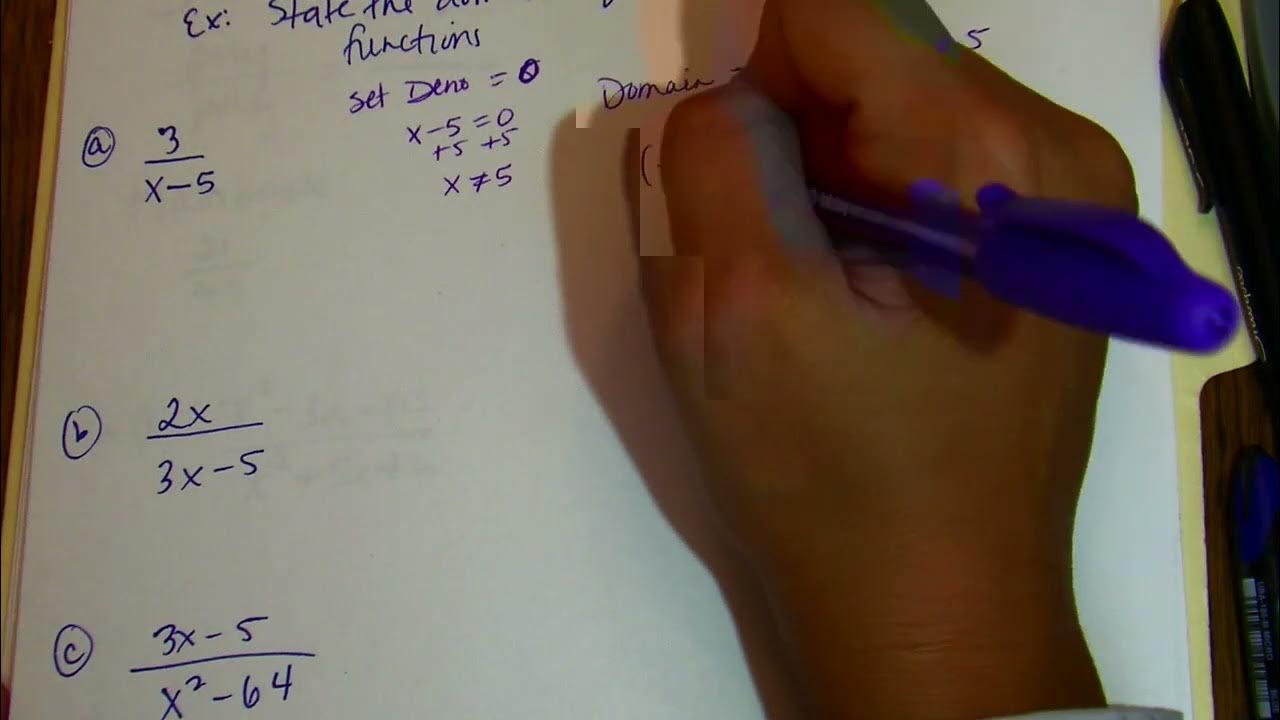 Ex: State the
functions
set Deno = 0
Domain
5
ⓐ 3
x-5
x-5=0
+5 +5
x≠5
(-
ⓑ 2x
3x-5
ⓒ 3x-5
x²-64